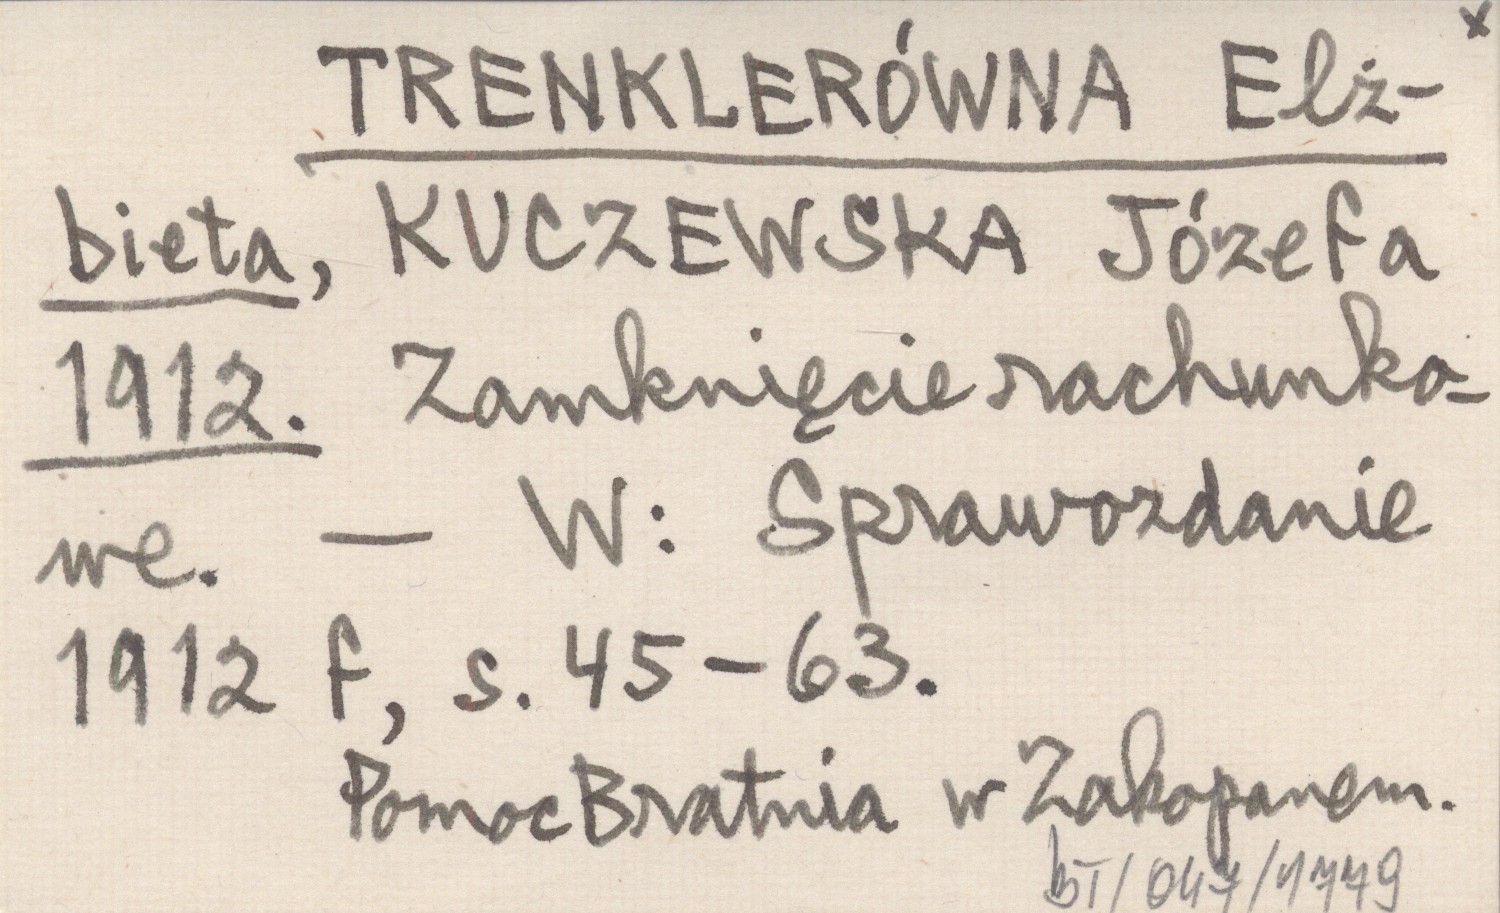 x
TRENKLERÓWNA Elż-
bieta, KUCZEWSKA Józefa
1912. Zamknięcie rachunko-
we. — W: Sprawozdanie
1912 f, s. 45-63.
Pomoc Bratnia w Zakopanem.
bT/047/1779